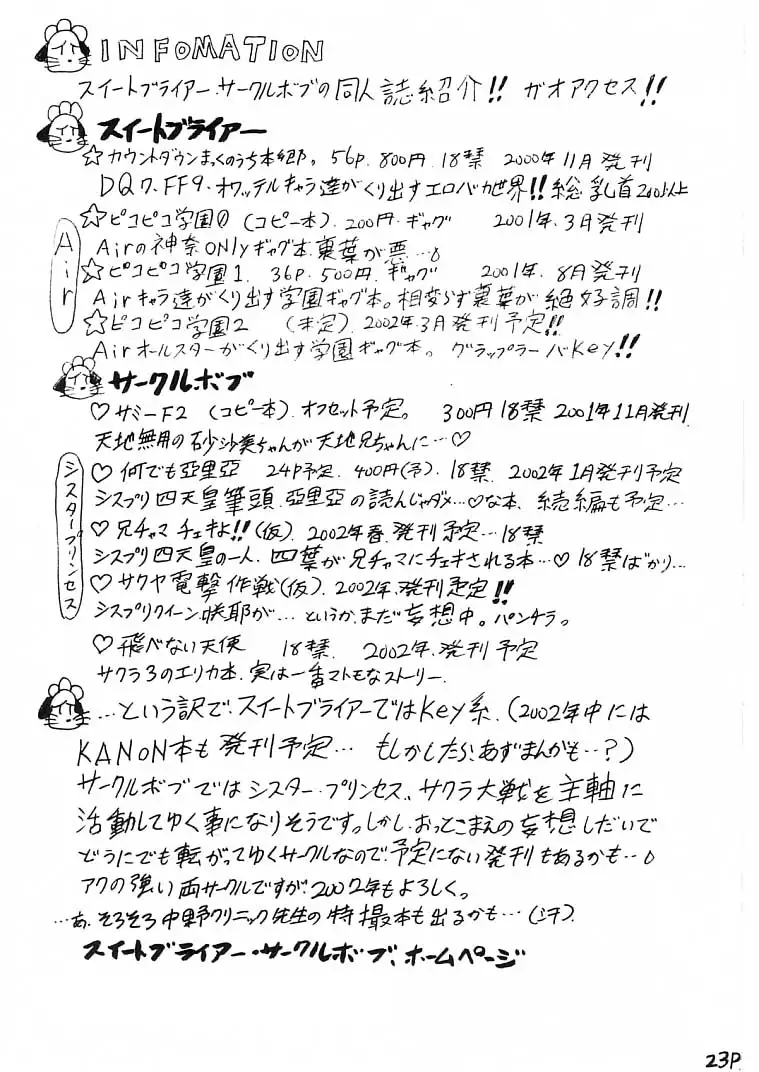 INFOMATION
スイートブライアー・サークルボブの同人誌紹介!! ガオアクセス!!
スイートブライアー
☆カウントダウンまっくのうち本郷。56p. 800円. 18禁 2000年11月発刊
DQ7、FF9・オワッテルキャラ達がくり出すエロバカ世界!!総乳首200以上
Air
☆ピコピコ学園0 (コピー本). 200円・ギャグ 2001年.3月発刊
Airの神奈ONlyギャグ本.裏葉が悪…
☆ピコピコ学園1. 36P. 500円. ギャグ 2001年.8月発刊
Airキャラ達がくり出す学園ギャグ本。相変らず裏葉が絶好調!!
☆ピコピコ学園2 (未定). 2002年.3月発刊予定!!
Airオールスターがくり出す学園ギャグ本。グラップラーバKey!!
サークルボブ
♡サミーF2 (コピー本).オフセット予定。 300円 18禁 2001年11月発刊
天地無用の砂沙美ちゃんが天地兄ちゃんに…♡
シスタープリンセス
♡何でも亞里亞 24P予定. 400円(予). 18禁. 2002年.1月発刊予定
シスプリ四天皇筆頭.亞里亞の読んじゃダメ…♡な本、続編も予定…
♡兄チャマ チェキよ!!(仮). 2002年春.発刊予定…18禁
シスプリ四天皇の一人.四葉が兄チャマにチェキされる本…♡ 18禁ばかり…
♡サクヤ電撃作戦(仮). 2002年.発刊予定!!
シスプリクイーン咲耶が…というか.まだ妄想中。パンチラ。
♡飛べない天使 18禁. 2002年.発刊予定
サクラ3のエリカ本.実は一番マトモなストーリー.
…という訳で.スイートブライアーではKey系.(2002年中には
KANON本も発刊予定… もしかしたら、あずまんがも…?)
サークルボブではシスター・プリンセス、サクラ大戦を主軸に
活動してゆく事になりそうです。しかし、おっとこまえの妄想しだいで
どうにでも転がってゆくサークルなので.予定にない発刊もあるかも…
アクの強い両サークルですが.2002年もよろしく。
…あ.そろそろ中野クリニック先生の特撮本も出るかも…(汗).
スイートブライアー・サークルボブ、ホームページ
23P